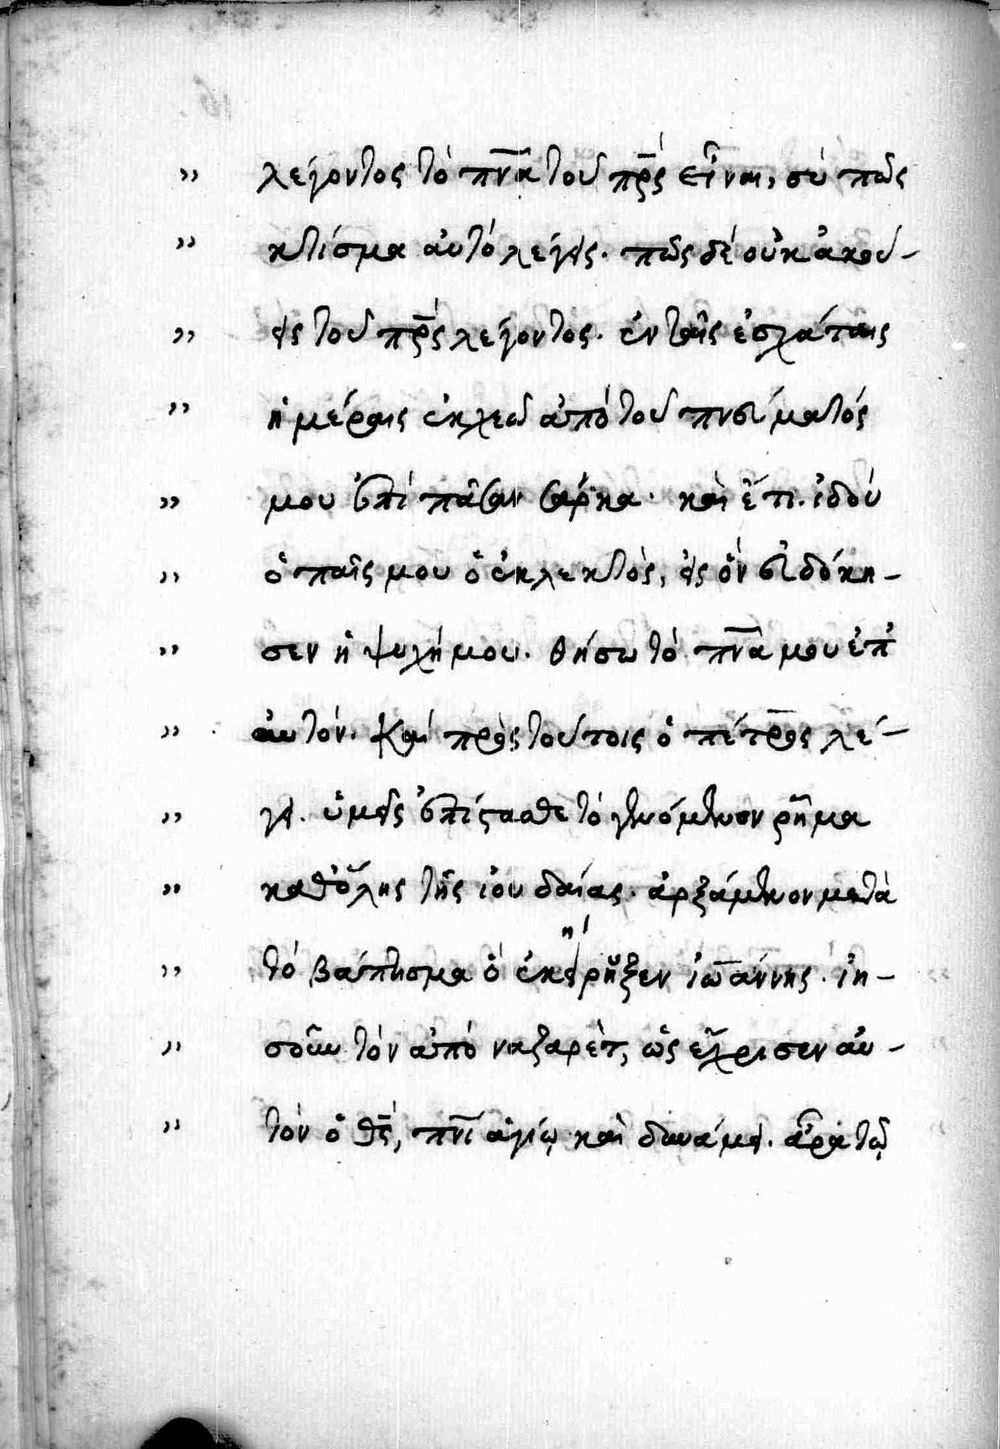 ” λέγοντος τὸ πν̅α τοῦ πρ̅ς εἶναι, σὺ πῶς
” κτίσμα αὐτὸ λέγεις. πῶς δὲ οὐκ ἀκού-
” εις τοῦ πρ̅ς λέγοντος. ἐν ταῖς ἐσχάταις
” ἡμέραις ἐκχεῶ ἀπὸ τοῦ πνεύματός
” μου ἐπὶ πᾶσαν σάρκα. καὶ ἔτι. ἰδού
” ὁ παῖς μου ὁ ἐκλεκτὸς, εἰς ὃν εὐδόκη-
” σεν ἡ ψυχή μου. θήσω τὸ πν̅α μου ἐπ’
” αὐτόν. καὶ πρὸς τούτοις ὁ πέτρος λέ-
” γει. ὑμεῖς ἐπίστασθε τὸ γενόμενον ῥῆμα
” καθ’ ὅλης τῆς ἰουδαίας. ἀρξάμενον μετὰ
” τὸ βάπτισμα ὃ ἐκήρυξεν ἰωάννης. ἰη-
” σοῦν τὸν ἀπὸ ναζαρὲτ, ὡς ἔχρισεν αὐ-
” τὸν ὁ θς̅, πν̅ι ἁγίῳ καὶ δυνάμει. ἆρα τῷ